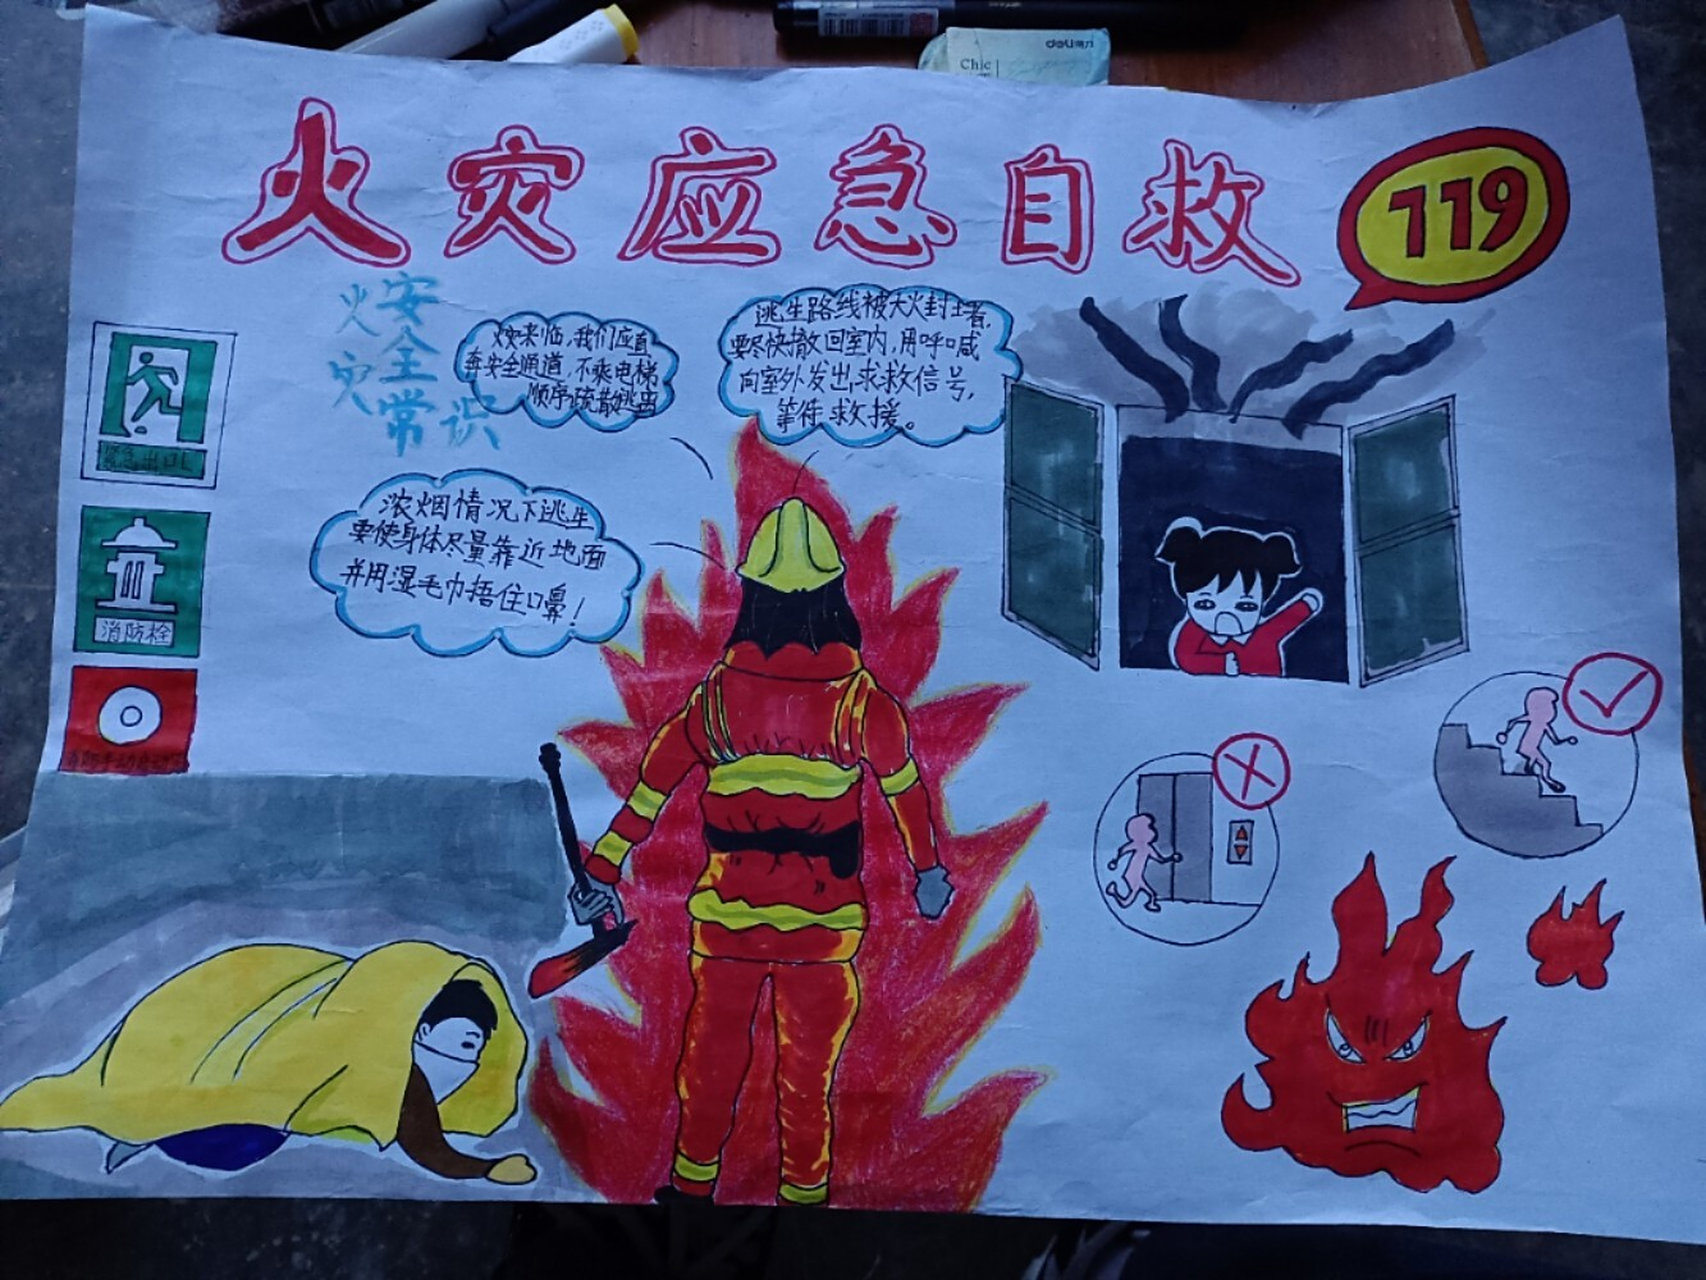 deli得力
Chic
火灾应急自救
119
火灾
安全常识
火灾来临,我们应直
奔安全通道,不乘电梯
顺序疏散逃离
逃生路线被大火封堵,
要尽快撤回室内,用呼喊
向室外发出求救信号,
等待救援。
浓烟情况下逃生
要使身体尽量靠近地面
并用湿毛巾捂住口鼻!
紧急出口
消防栓